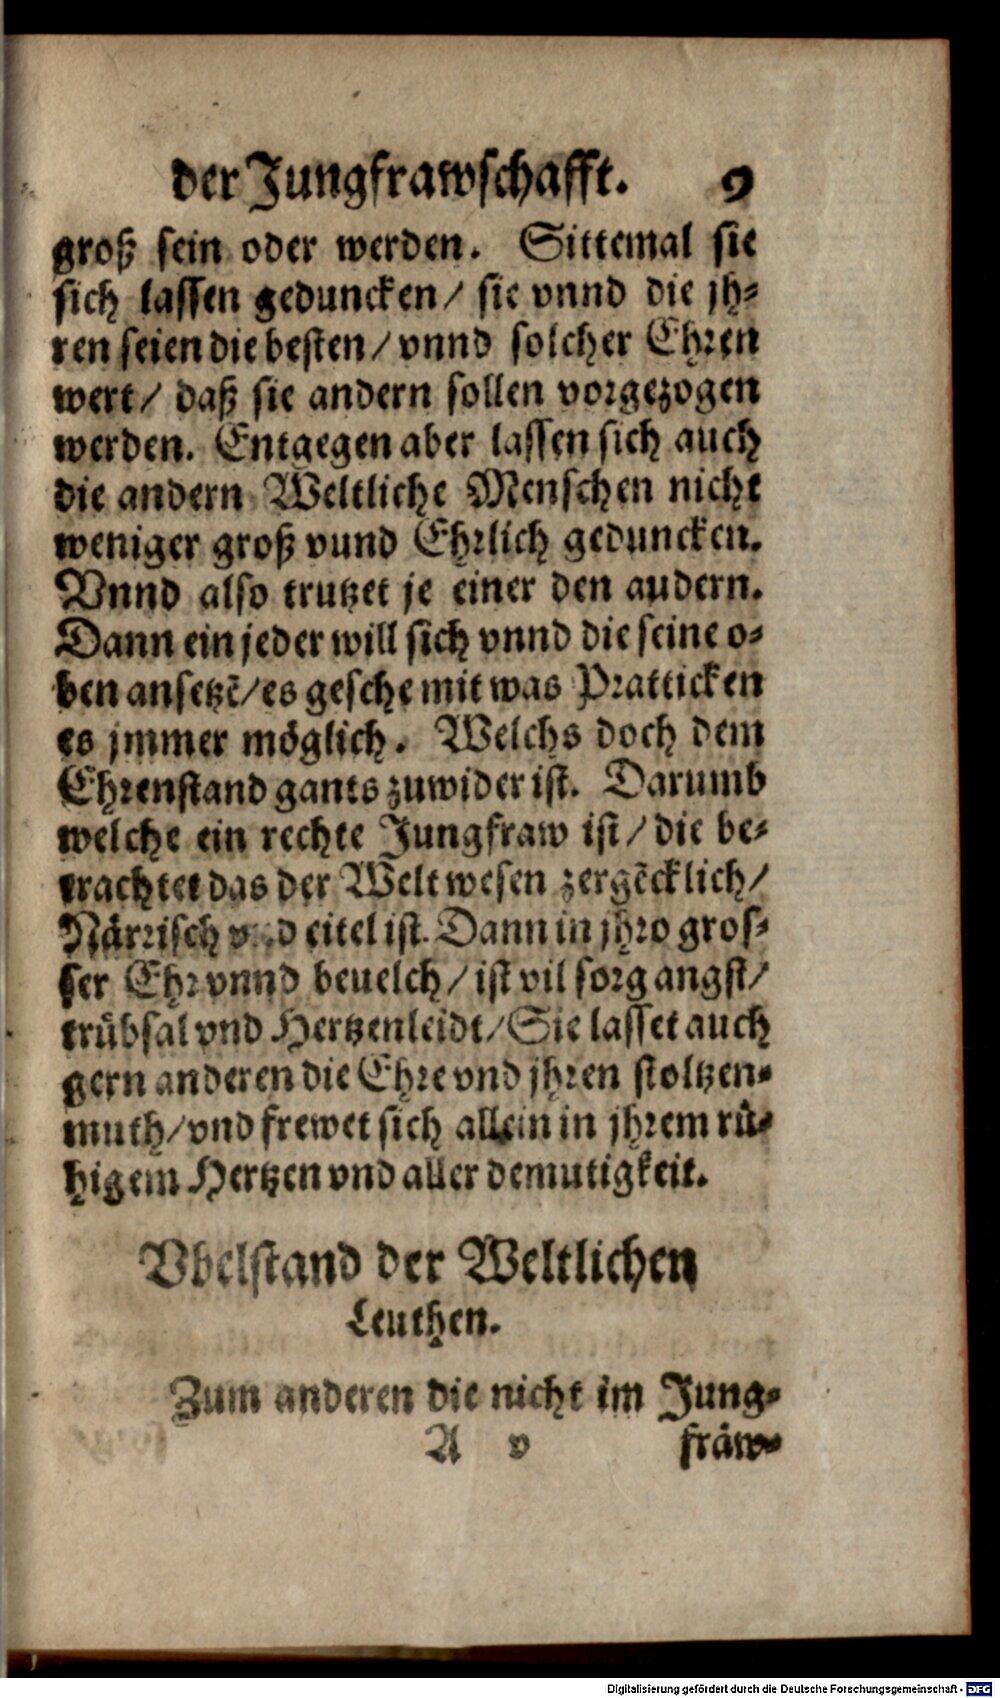 der Jungfrawschafft. 9
groß sein oder werden. Sittemal sie
sich lassen geduncken/ sie vnnd die jh-
ren seien die besten/ vnnd solcher Ehren
wert/ daß sie andern sollen vorgezogen
werden. Entgegen aber lassen sich auch
die andern Weltliche Menschen nicht
weniger groß vund Ehrlich geduncken.
Vnnd also trutzet je einer den audern.
Dann ein jeder will sich vnnd die seine o-
ben ansetzē/ es gesche mit was Pratticken
es jmmer möglich. Welchs doch dem
Ehrenstand gants zuwider ist. Darumb
welche ein rechte Jungfraw ist/ die be-
trachtet das der Welt wesen zergēcklich/
Närrisch vnd eitel ist. Dann in jhro gros-
ser Ehr vnnd beuelch/ ist vil sorg angst/
trübsal vnd Hertzenleidt/ Sie lasset auch
gern anderen die Ehre vnd jhren stoltzen-
muth/ vnd frewet sich allein in jhrem rü-
higem Hertzen vnd aller demutigkeit.
Vbelstand der Weltlichen
Leuthen.
Zum anderen die nicht im Jung-
A v fräw-
Digitalisierung gefördert durch die Deutsche Forschungsgemeinschaft - DFG